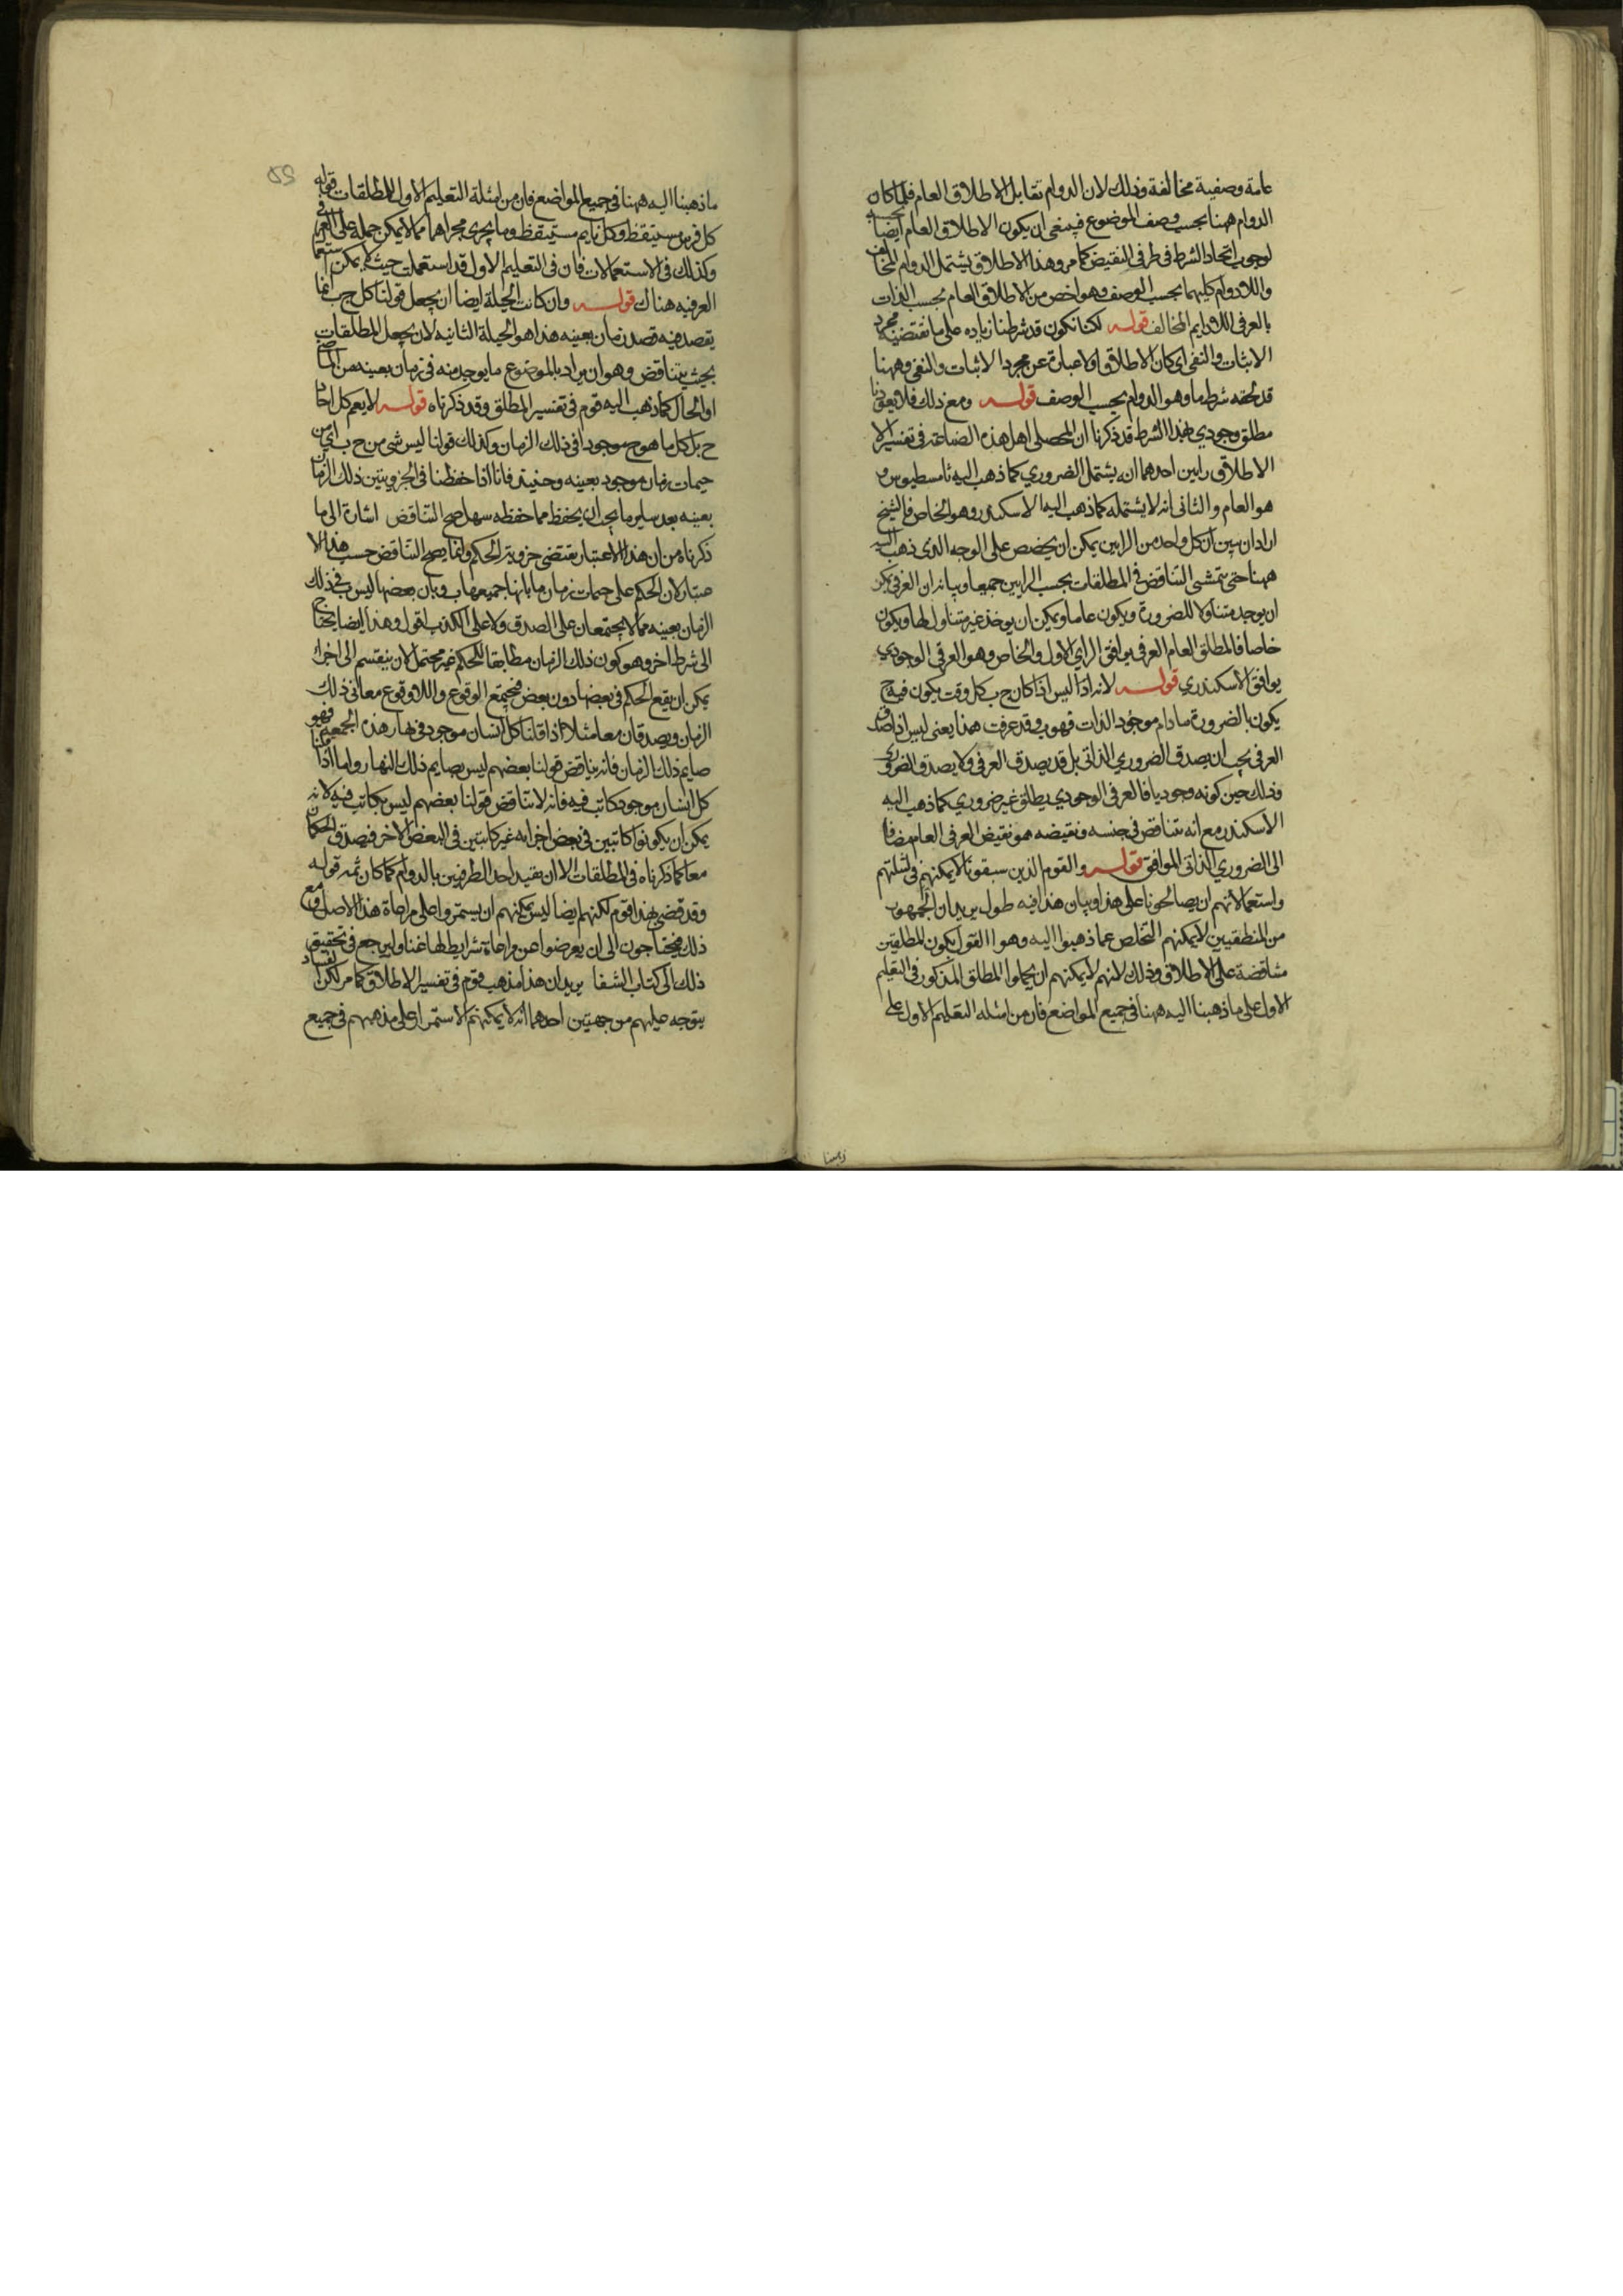 عامة وصفية مخالفة وذلك لان الدوام تقابل الاطلاق العام فلما كان
الدوام ههنا بحسب وصف الموضوع فينبغي ان يكون الاطلاق العام ايضا بحسبه
لوجوب اتحاد الشرط في طرفي النقيض كما مر وهذا الاطلاق يشتمل الدوام المخالف
واللادوام كليهما بحسب الوصف وهو اخص من الاطلاق العام بحسب الذات
بالعرفي اللادايم المخالف قوله لكنا نكون قد شرطنا زيادة على ما تقتضيه مجرد
الاثبات والنفي اي كان الاطلاق اولا عبارة عن مجرد الاثبات والنفي وههنا
قد لحقه شرط ما وهو الدوام بحسب الوصف قوله ومع ذلك فلا يعوزنا
مطلق وجودي بهذا الشرط قد ذكرنا ان لمحصلي اهل هذه الصناعة في تفسير الا
الاطلاق رايين احدهما انه يشتمل الضروري كما ذهب اليه ثامسطيوس و
هو العام والثاني انه لا يشتمله كما ذهب اليه الاسكندر وهو الخاص فالشيخ
اراد ان يبين ان كل واحد من الرايين يمكن ان يخصص على الوجه الذي ذهب اليه
ههنا حتى يتمشى التناقض في المطلقات بحسب الرايين جميعا وبيانه ان العرفي يمكن
ان يوجد متناولا للضرورة ويكون عاما ويمكن ان يوخذ غير متناول لها ويكون
خاصا فالمطلق العام العرفي يوافق الراي الاول والخاص وهو العرفي الوجودي
يوافق الاسكندري قوله لانه اذا ليس اذا كان ج ب كل وقت يكون فيه ج
يكون بالضرورة ما دام موجود الذات فهو ب وقد عرفت هذا يعني ليس اذا صدق
العرفي يجب ان يصدق الضروري الذاتي بل قد يصدق العرفي ولا يصدق الضروري
وذلك حين كونه وجوديا فالعرفي الوجودي يطلق غير ضروري كما ذهب اليه
الاسكندر مع انه تناقض في جنسه ونقيضه هو نقيض العرفي العام مضافا
الى الضروري الذاتي الموافق قوله والقوم الذين سبقونا لا يمكنهم في امثلتهم
واستعمالاتهم ان يصالحونا على هذا وبيان هذا فيه طول يريد ان الجمهور
من المنطقيين لا يمكنهم التخلص عما ذهبوا اليه وهو القول بكون المطلقتين
متناقضة على الاطلاق وذلك لانهم لا يمكنهم ان يحملوا المطلق المذكور في التعليم
الاول على ما ذهبنا اليه ههنا في جميع المواضع فان من امثلة التعليم الاول على
ما ذهبنا اليه ههنا في جميع المواضع فان من امثلة التعليم الاول للمطلقات قوله
كل فرس مستيقظ وكل نايم مستيقظ وما يجري مجراهما مما لا يمكن حمله على العرفي
وكذلك في الاستعمالات فان في التعليم الاول قد استعملت حيث لا يمكن استعما
العرفيه هناك قوله وان كانت الحيلة ايضا ان يجعل قولنا كل ج ب انما
يقصد فيه قصد زمان بعينه هذا هو الحيلة الثانيه لان يجعل المطلقات
بحيث يتناقض وهو ان يراد بالموضوع ما يوجد منه في زمان بعينه من الماضي
او الحال كما ذهب اليه قوم في تفسير المطلق وقد ذكرناه قوله لا يعم كل احاد
ج بل كل ما هو ج موجودا في ذلك الزمان وكذلك قولنا ليس شي من ج ب اي من
جيمات زمان موجود بعينه وحينيذ فانا اذا حفظنا في الجزويتين ذلك الزمان
بعينه بعد ساير ما يجب ان يحفظ مما حفظه سهل صح التناقض اشارة الى ما
ذكرناه من ان هذا الاعتبار تقتضي جزوية الحكم وانما يصح التناقض حسب هذا الا
عتبار لان الحكم على جيمات زمان ما بانها جميعها ب وبان بعضها ليس ب في ذلك
الزمان بعينه مما لا يجتمعان على الصدق ولا على الكذب اقول وهذا ايضا يحتاج
الى شرط اخر وهو كون ذلك الزمان مطابقا للحكم غير محتمل لان ينقسم الى اجزاء
يمكن ان يقع الحكم في بعضها دون بعض فيجتمع الوقوع واللاوقوع معا في ذلك
الزمان ويصدقان معا مثلا اذا قلنا كل انسان موجود في نهار هذه الجمعة فهو
صايم ذلك الزمان فانه يناقض قولنا بعضهم ليس بصايم ذلك النهار واما اذا قلنا
كل انسان موجود كاتب فيه فانه لا يناقض قولنا بعضهم ليس بكاتب فيه لانه
يمكن ان يكونوا كاتبين في بعض اجزايه غير كاتبين في البعض الاخر فيصدق الحكمان
معا كما ذكرناه في المطلقات الا ان نقيد احد الطرفين بالدوام كما كان ثمه قوله
وقد قضى بهذا قوم لكنهم ايضا ليس يمكنهم ان يستمروا على مراعاة هذا الاصل ومع
ذلك فيحتاجون الى ان يعرضوا عن مراعاة شرايط لها غنا وليرجع في تحقيق
ذلك الى كتاب الشفا يريد ان هذا مذهب قوم في تفسير الاطلاق كما مر لكن الفساد
يتوجه عليهم من جهتين احدهما انه لا يمكنهم الاستمرار على مذهبهم في جميع